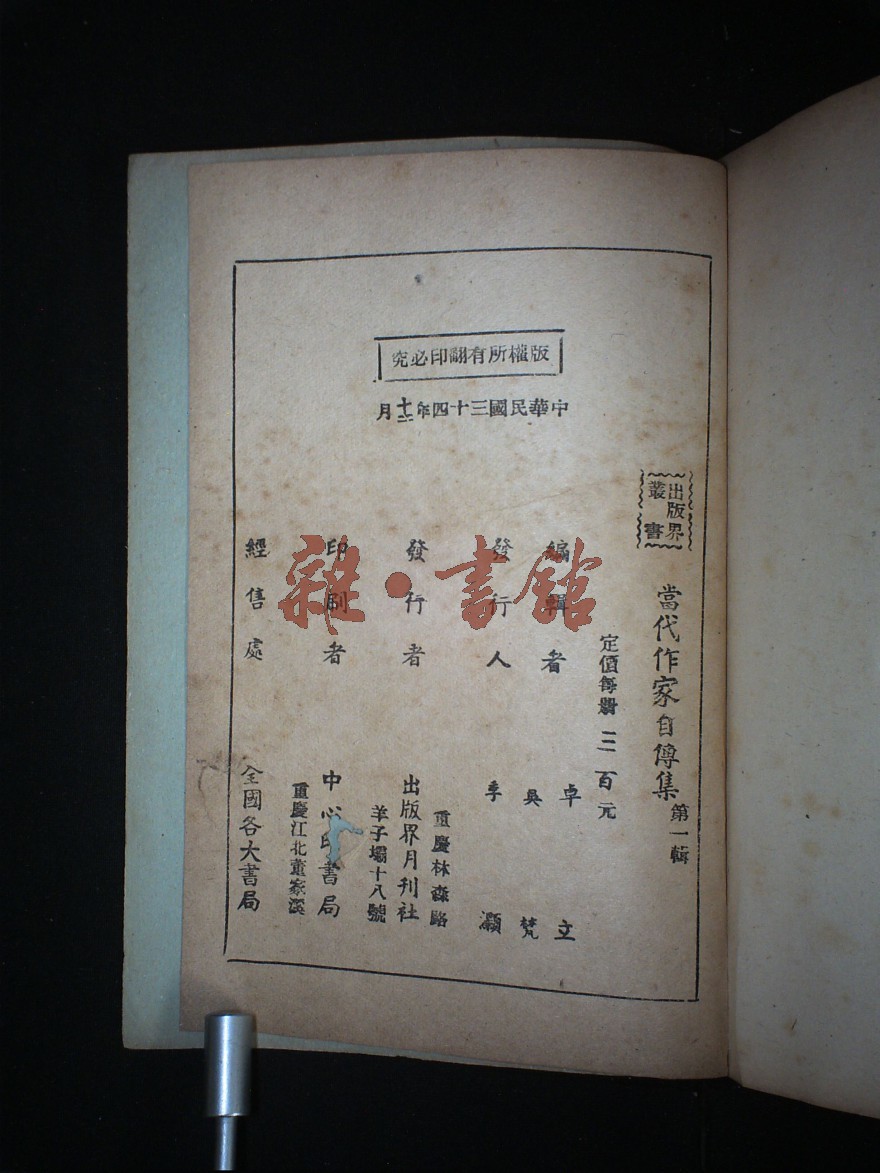 版權所有翻印必究
中華民國三十四年十二月
出版界叢書
當代作家自傳集 第一輯
定價每册 三百元
編輯者 卓立
吳梵
發行人 季灝
發行者 出版界月刊社
重慶林森路
羊子壩十八號
印刷者 中心印書局
重慶江北董家溪
經售處 全國各大書局
雜·書館